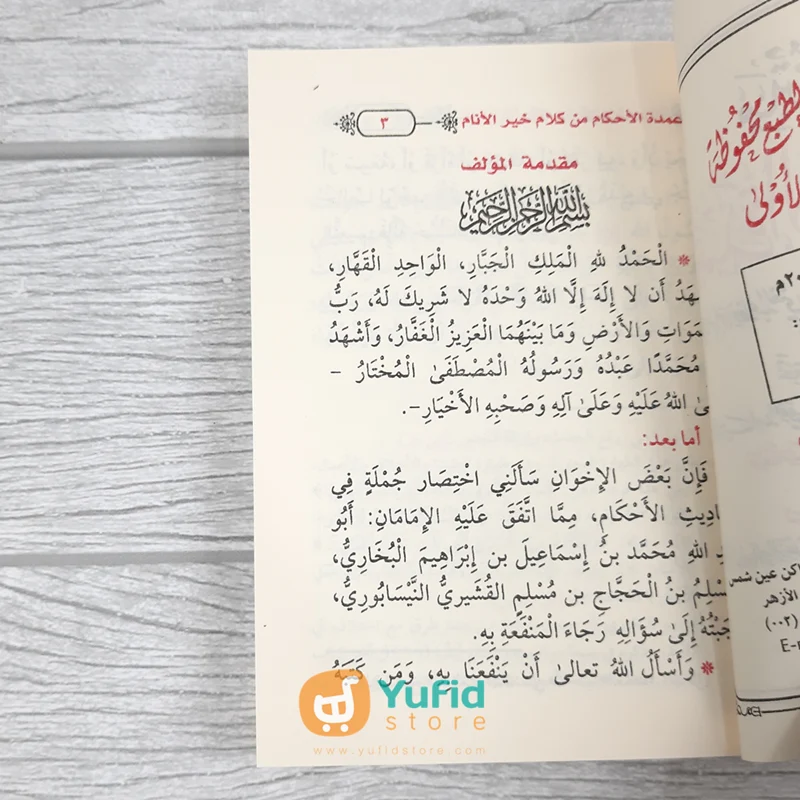 عمدة الأحكام من كلام خير الأنام ٣
مقدمة المؤلف
بسم الله الرحمن الرحيم
* الْحَمْدُ للهِ الْمَلِكِ الْجَبَّارِ، الْوَاحِدِ الْقَهَّارِ،
أَن لا إِلَهَ إِلَّا اللهُ وَحْدَهُ لا شَرِيكَ لَهُ، رَبُّ
وَالأَرْضِ وَمَا بَيْنَهُمَا الْعَزِيزُ الْغَفَّارُ، وَأَشْهَدُ
مُحَمَّدًا عَبْدُهُ وَرَسُولُهُ الْمُصْطَفَىٰ الْمُخْتَارُ –
اللهُ عَلَيْهِ وَعَلَىٰ آلِهِ وَصَحْبِهِ الأَخْيَارِ–.
أما بعد:
فَإِنَّ بَعْضَ الإِخْوَانِ سَأَلَنِي اخْتِصَار جُمْلَةٍ فِي
الأَحْكَامِ، مِمَّا اتَّفَقَ عَلَيْهِ الإِمَامَانِ: أَبُو
اللهِ مُحَمَّد بنُ إِسْمَاعِيلَ بن إِبْرَاهِيمَ الْبُخَارِيُّ،
بنُ الْحَجَّاجِ بن مُسْلِمٍ القُشَيرِيُّ النَّيْسَابُورِيُّ،
إِلَىٰ سُؤَالِهِ رَجَاءَ الْمَنْفَعَةِ بِهِ.
* وَأَسْأَلُ اللهُ تعالىٰ أَنْ يَنْفَعَنَا بِهِ، وَمَن كَتَبَهُ
محفوظة
الأولى
عين شمس
الأزهر
(٠٠٢)
Yufid
store
www.yufidstore.com